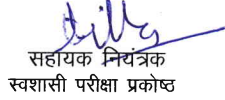 सहायक नियंत्रक
स्वशासी परीक्षा प्रकोष्ठ